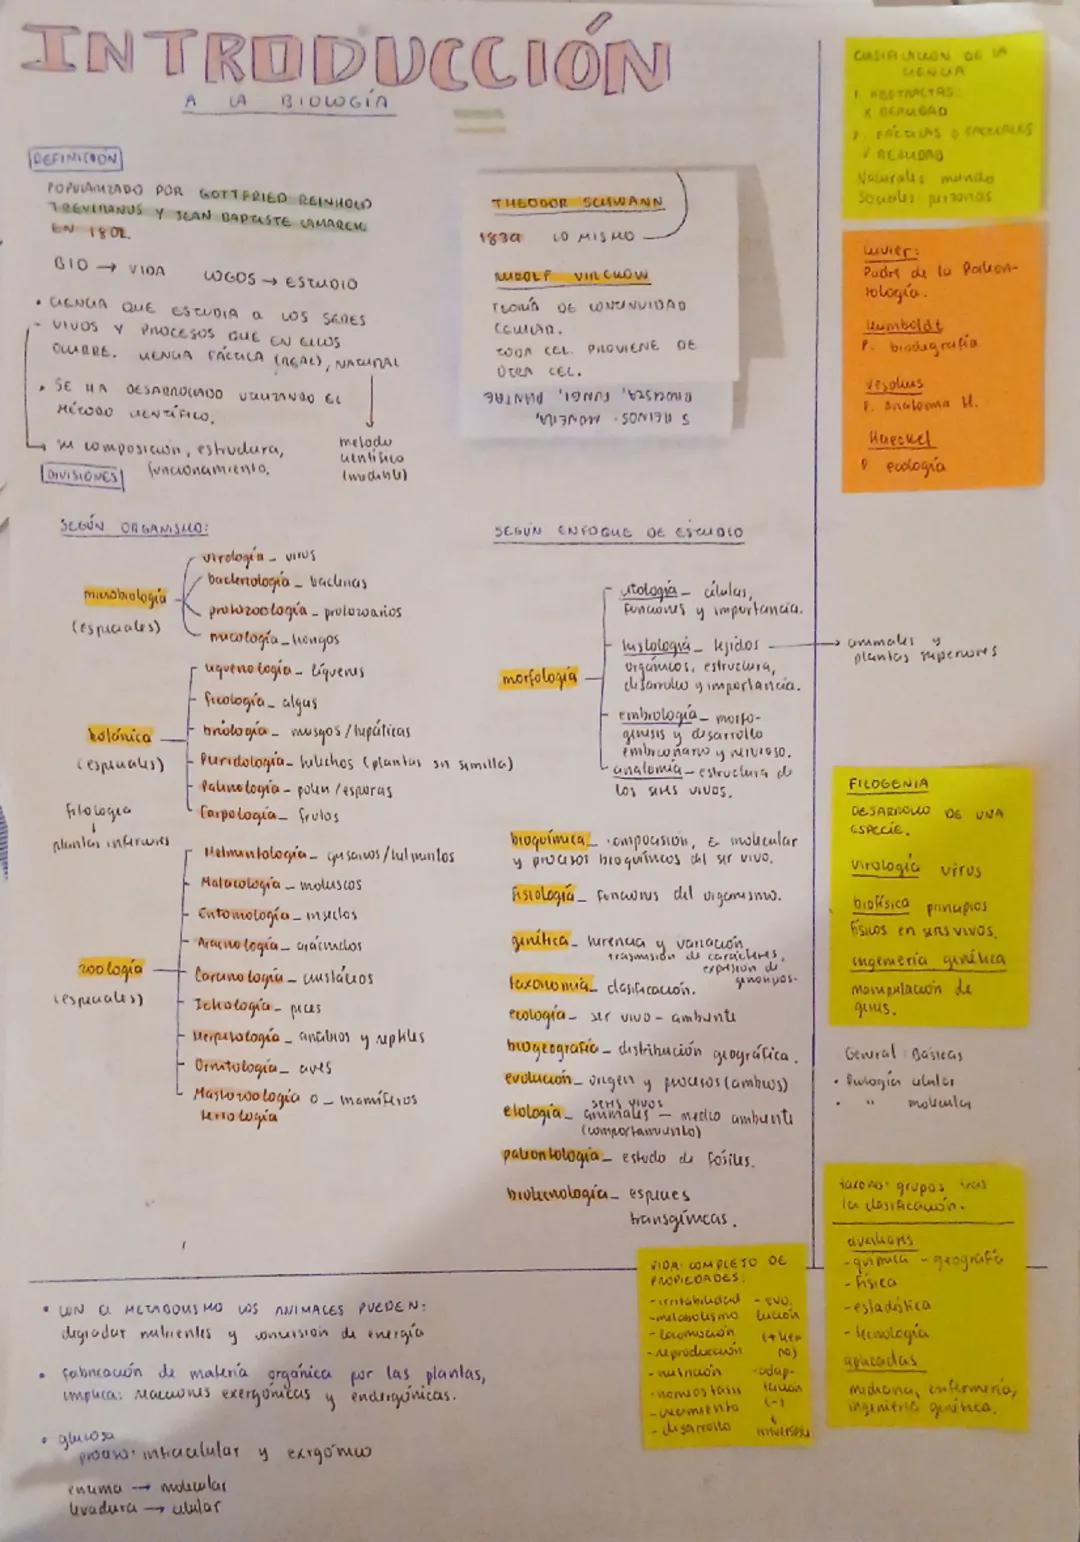 INTRODUCCIÓN
A LA BIOLOGÍA
DEFINICIÓN
POPULARIZADO POR GOTTFRIED REINHOLD
TREVIRANUS Y JEAN BAPTISTE LAMARCK
EN 1802.
BIO → VIDA LOGOS → ESTUDIO
• CIENCIA QUE ESTUDIA a LOS SERES
VIVOS Y PROCESOS QUE EN ELLOS
OCURRE. CIENCIA FÁCTICA (REAL), NATURAL
• SE HA DESARROLLADO UTILIZANDO EL
MÉTODO CIENTÍFICO.
su composición, estructura,
funcionamiento.
metodo
científico
(medible)
THEODOR SCHWANN
1839 LO MISMO
RUDOLF VIRCHOW
TEORÍA DE CONTINUIDAD
CELULAR.
TODA CEL. PROVIENE DE
OTRA CEL.
5 REINOS: MONERA,
PROTISTA, FUNGI, PLANTAE
DIVISIONES
SEGÚN ORGANISMO:
microbiología
(especiales)
virología – virus
bacteriología – bacterias
protozoología – protozoarios
micología – hongos
botánica
(especiales)
liquenología – líquenes
ficología – algas
briología – musgos/hepáticas
Pteridología – helechos (plantas sin semilla)
Palinología – polen/esporas
Carpología – frutos
ficología
↓
plantas inferiores
zoología
(especiales)
Helmintología – gusanos/helmintos
Malacología – moluscos
Entomología – insectos
Aracnología – arácnidos
Carcinología – crustáceos
Ictiología – peces
Herpetología – anfibios y reptiles
Ornitología – aves
Mastozoología o – mamíferos
teriología
SEGÚN ENFOQUE DE ESTUDIO
morfología
citología – células,
funciones y importancia.
histología – tejidos → animales y
plantas superiores
orgánicos, estructura,
desarrollo y importancia.
embriología – morfo-
génesis y desarrollo
embrionario y nervioso.
anatomía – estructura de
los seres vivos.
bioquímica – composición, E molecular
y procesos bioquímicos del ser vivo.
fisiología – funciones del organismo.
genética – herencia y variación,
trasmisión de carácteres,
expresión de
genotipos.
taxonomía – clasificación.
ecología – ser vivo – ambiente
biogeografía – distribución geográfica.
evolución – origen y procesos (cambios)
seres vivos
etología – animales – medio ambiente
(comportamiento)
paleontología – estudo de fósiles.
biotecnología – especies
transgénicas.
CLASIFICACIÓN DE LA
CIENCIA
1. ABSTRACTAS:
X REALIDAD
2. FÁCTICAS O FACTUALES
✓ REALIDAD
Naturales mundo
Sociales personas
Cuvier:
Padre de la Paleon-
tología.
Humboldt
P. biogeografía
Vesalius
P. anatomía H.
Haeckel
P ecología
FILOGENIA
DESARROLLO DE UNA
ESPECIE.
virología virus
biofísica principios
físicos en seres vivos.
ingeniería genética
manipulación de
genes.
General: Básicas
• Biología celular
• " molecular
taxones: grupos tras
la clasificación.
auxiliares
- química - geografía
- física
- estadística
- tecnología
aplicadas
medicina, enfermería,
ingeniería genética.
VIDA: COMPLEJO DE
PROPIEDADES:
- irritabilidad - evo.
- metabolismo lución
- locomoción (+ tiem
- reproducción po)
- nutrición - adap-
- homeostasis tación
- crecimiento (-)
- desarrollo
• CON EL METABOLISMO LOS ANIMALES PUEDEN:
degradar nutrientes y conversión de energía
• fabricación de materia orgánica por las plantas,
implica: reacciones exergónicas y endergónicas.
• glucosa
proceso: intracelular y exergónico
enzima → molecular
levadura → celular